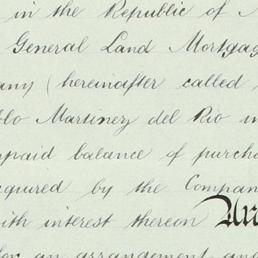 in the Republic of
General Land Mortgag
any (hereinafter called
blo Martinez del Rio in
npaid balance of purcha
cquired by the Compan
ith interest thereon Un
for an arrangement and